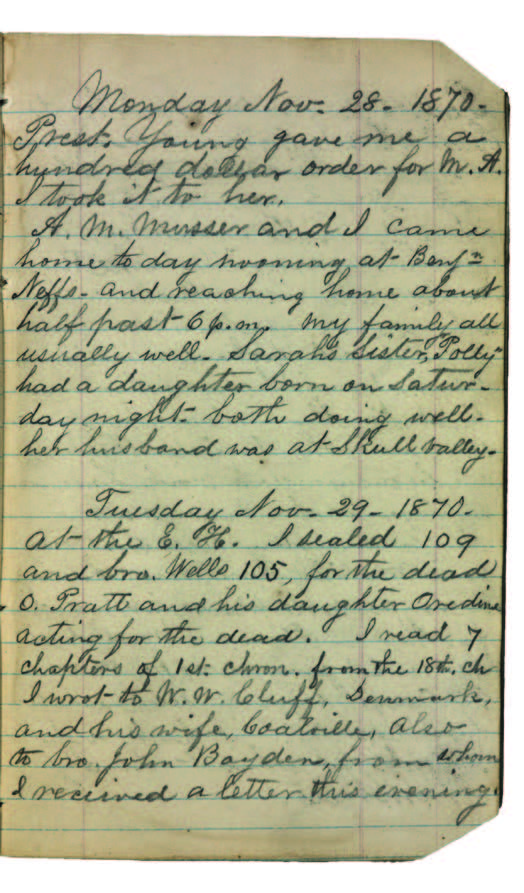 Monday Nov. 28. 1870.
Prest. Young gave me a
hundred dollar order for M. A.
I took it to her.
A. M. Musser and I came
home to day nooning at Benjn
Neffs. and reaching home about
half past 6 p.m. My family all
usually well. Sarah's Sister, "Polly"
had a daughter born on Satur-
day night. both doing well.
her husband was at Skull valley.
Tuesday Nov. 29. 1870.
At the E. H. I sealed 109
and bro. Wells 105, for the dead
O. Pratt and his daughter Oredine
acting for the dead. I read 7
chapters of 1st. chron. from the 18th. ch
I wrot to W. W. Cluff, Denmark,
and his wife, Coalville, also
to bro. John Boyden, from whom
I recieved a letter this evening.